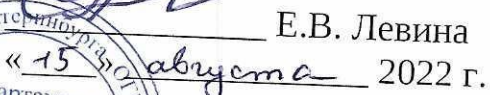 Е.В. Левина
«15» августа 2022 г.